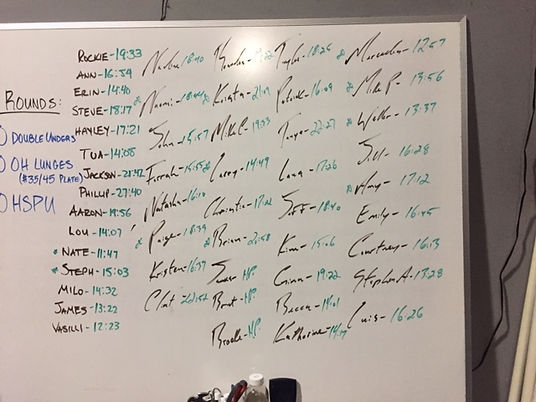 ROUNDS:
DOUBLE UNDERS
OH LUNGES
(#35/45 PLATE)
HSPU
ROCKIE-19:33
ANN-16:54
ERIN-14:40
STEVE-18:17
HAYLEY-17:21
TUA-14:08
JACKSON-21:42
PHILLIP-27:40
AARON-19:56
LOU-14:07
* NATE-11:47
* STEPH-15:03
MILO-14:32
JAMES-13:22
VASILLI-12:23
18:40
* Naomi-18:44
John-15:57
Farrah-15:55
Natasha-16:10
* Paige-18:39
Kristen-16:37
Clint 22:52
* Krista-21:09
Mike C-19:33
Corey-14:49
Christie-17:02
* Brian-20:58
HP
Brent-HP
Brooke-HP
Taylor-18:26
Patrick-16:09
Tanya-22:27
Lana-17:26
Jeff-18:40
Kim-15:06
Gina-19:22
Becca-19:01
Katherine-14:17
* Mercedes-12:57
* Mike P-13:56
* Walter-13:37
Jill-16:28
* Amy-17:12
Emily-16:45
Courtney-16:13
Stephen A-13:28
Luis-16:26